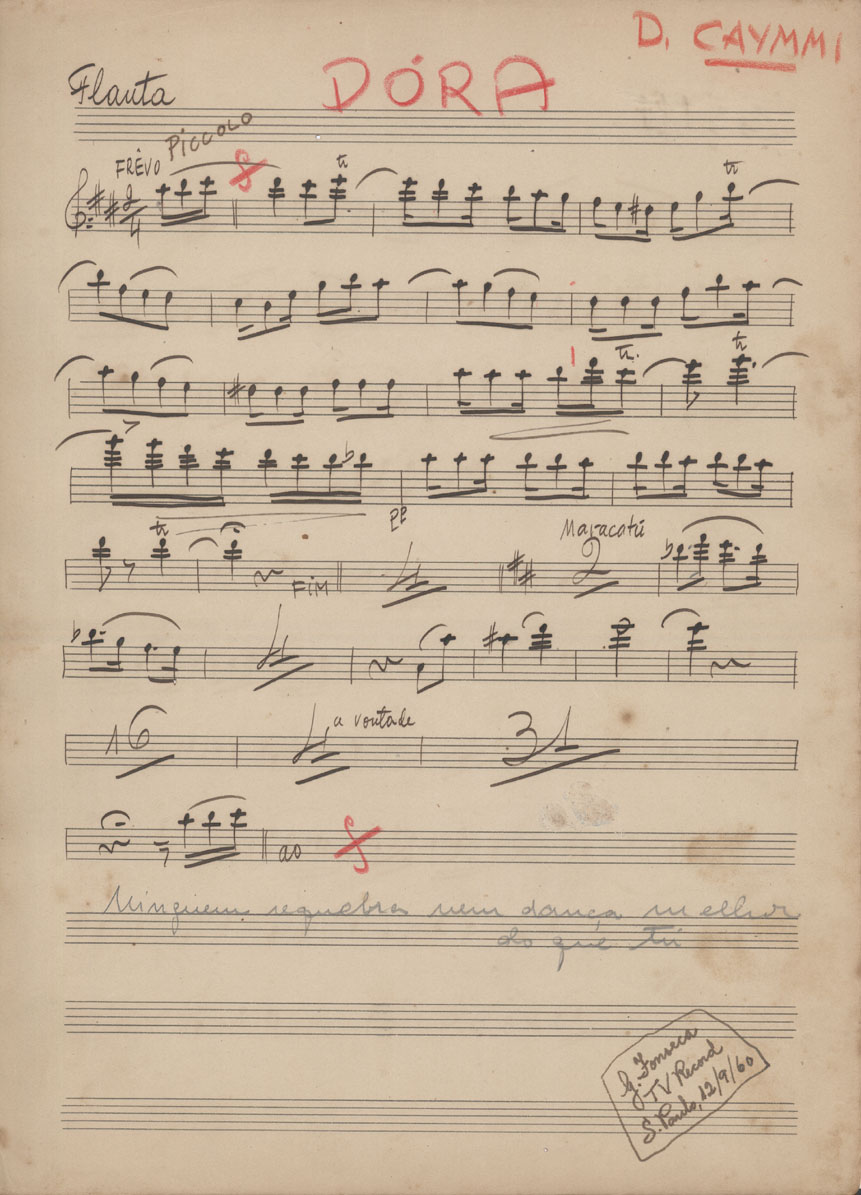 D. CAYMMI
DÓRA
Flauta
FRÊVO PICCOLO
2
4
tr
tr
tr.
tr
PP
tr
FIM
4
Maracatú
2
4
16
4 a vontade
31
ao
Ninguem requebra nem dança melhor
do que tú
Fonseca
TV Record
S. Paulo, 12/9/60